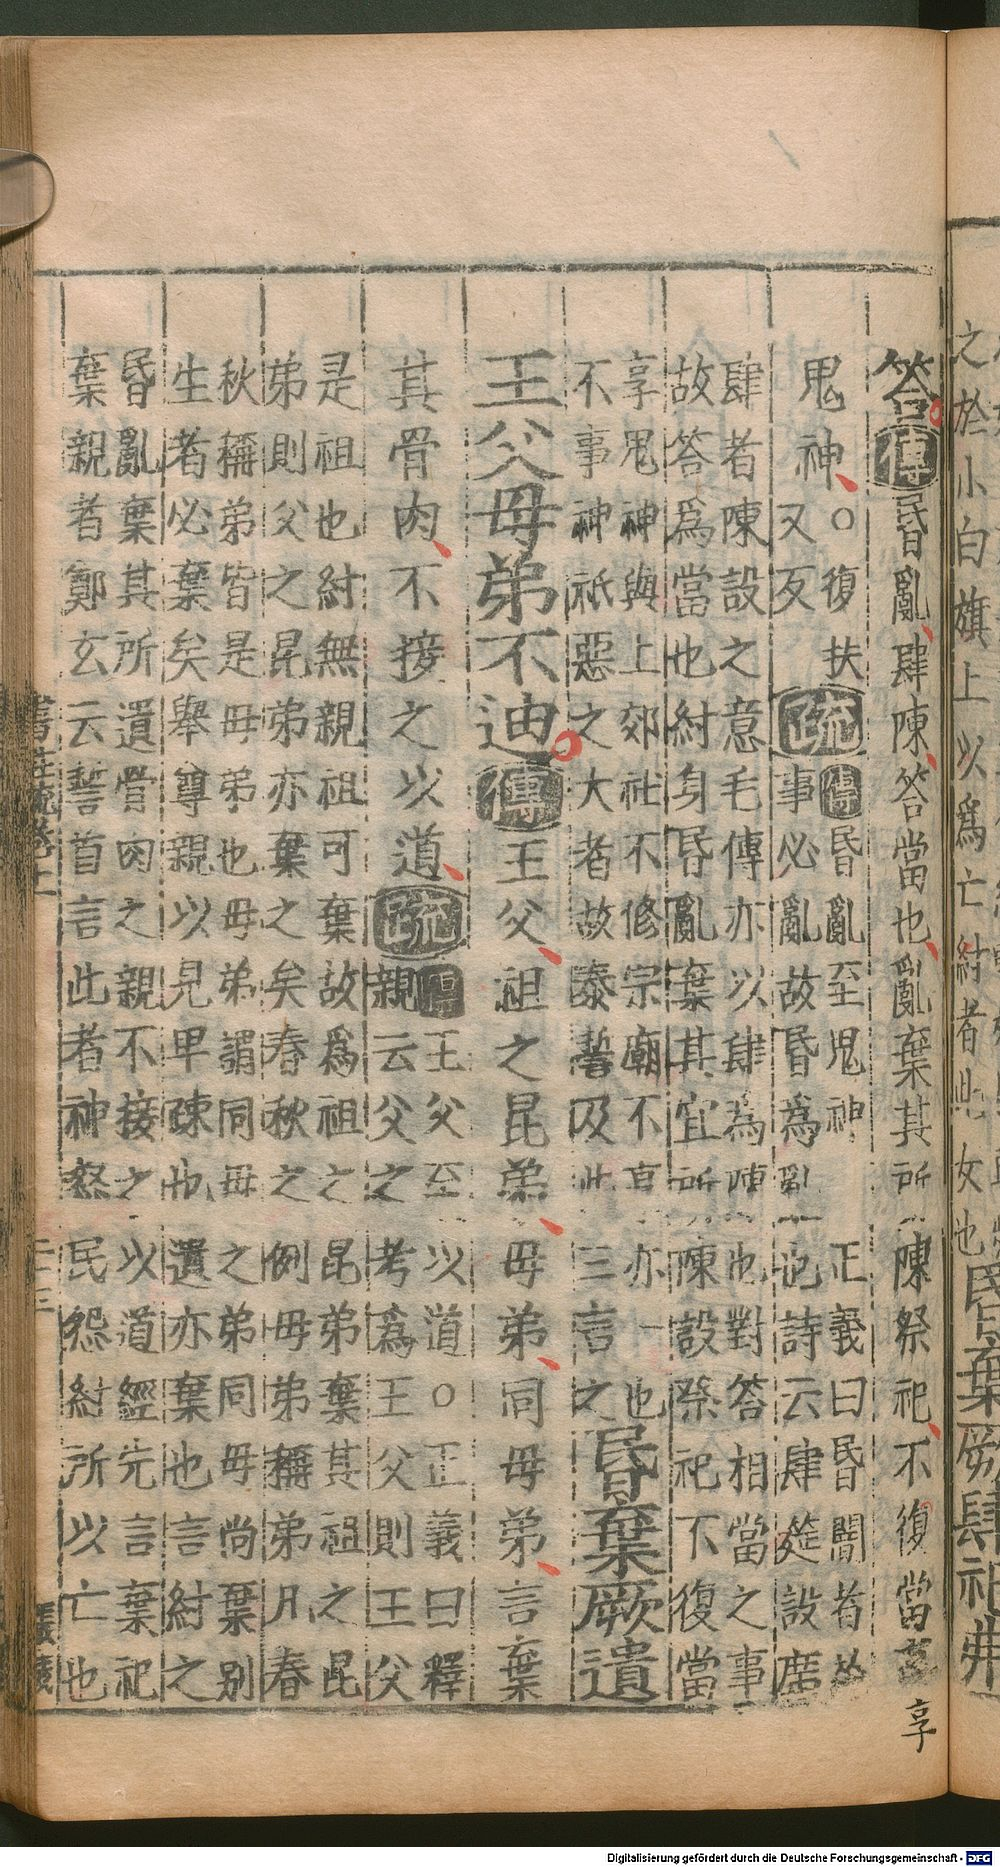 之於小白旗上以爲亡紂者此女也昏棄厥肆祀弗
答傳昏亂肆陳答當也亂棄其所陳祭祀不復當
享
鬼神○復扶
又反疏傳昏亂至鬼神
事必亂故昏爲亂
正義曰昏闇者於
也詩云肆筵設席
肆者陳設之意毛傳亦以肆爲陳也對答相當之事
故答爲當也紂身昏亂棄其宜所陳設祭祀不復當
享鬼神與上郊社不修宗廟不享亦一也
不事神祇惡之大者故泰誓及此三言之昏棄厥遺
王父母弟不迪傳王父祖之昆弟母弟同母弟言棄
其骨肉不接之以道疏傳王父至以道○正義曰釋
親云父之考爲王父則王父
是祖也紂無親祖可棄故爲祖之昆弟棄其祖之昆
弟則父之昆弟亦棄之矣春秋之例母弟稱弟凡春
秋稱弟皆是母弟也母弟謂同母之弟同母尚棄別
生者必棄矣舉尊親以見卑疎也遺亦棄也言紂之
昏亂棄其所遺骨肉之親不接之以道經先言棄祀
棄親者鄭玄云誓首言此者神怒民怨紂所以亡也
書註疏卷十一
二十三
Digitalisierung gefördert durch die Deutsche Forschungsgemeinschaft - DFG